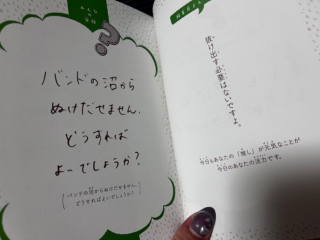 みんなの
バンドの沼から
ぬけだせません。
どうすれば
よいでしょうか?
バンドの沼からぬけだせません。
どうすればよいでしょうか?
抜け出す必要はないですよ。
今日もあなたの「推し」が元気なことが
今日のあなたの活力です。